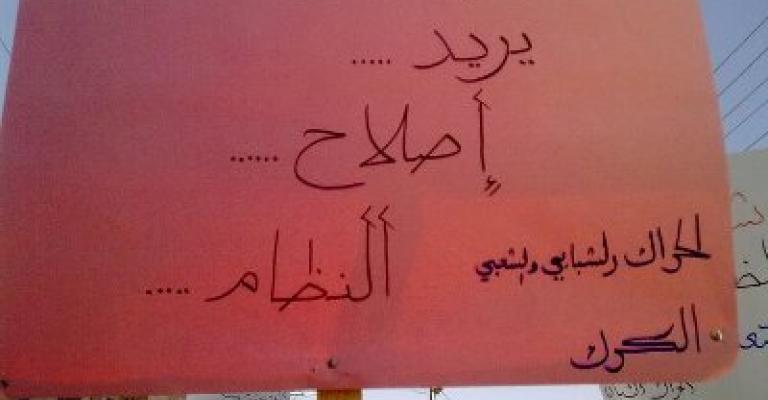 يريد .....
إصلاح .......
النظام ......
الحراك الشبابي والشعبي
الكرك